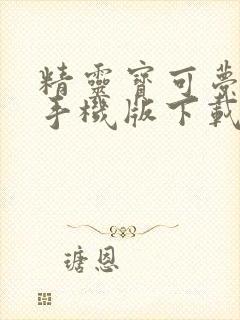 精靈寶可夢
手機版下載
瑭恩